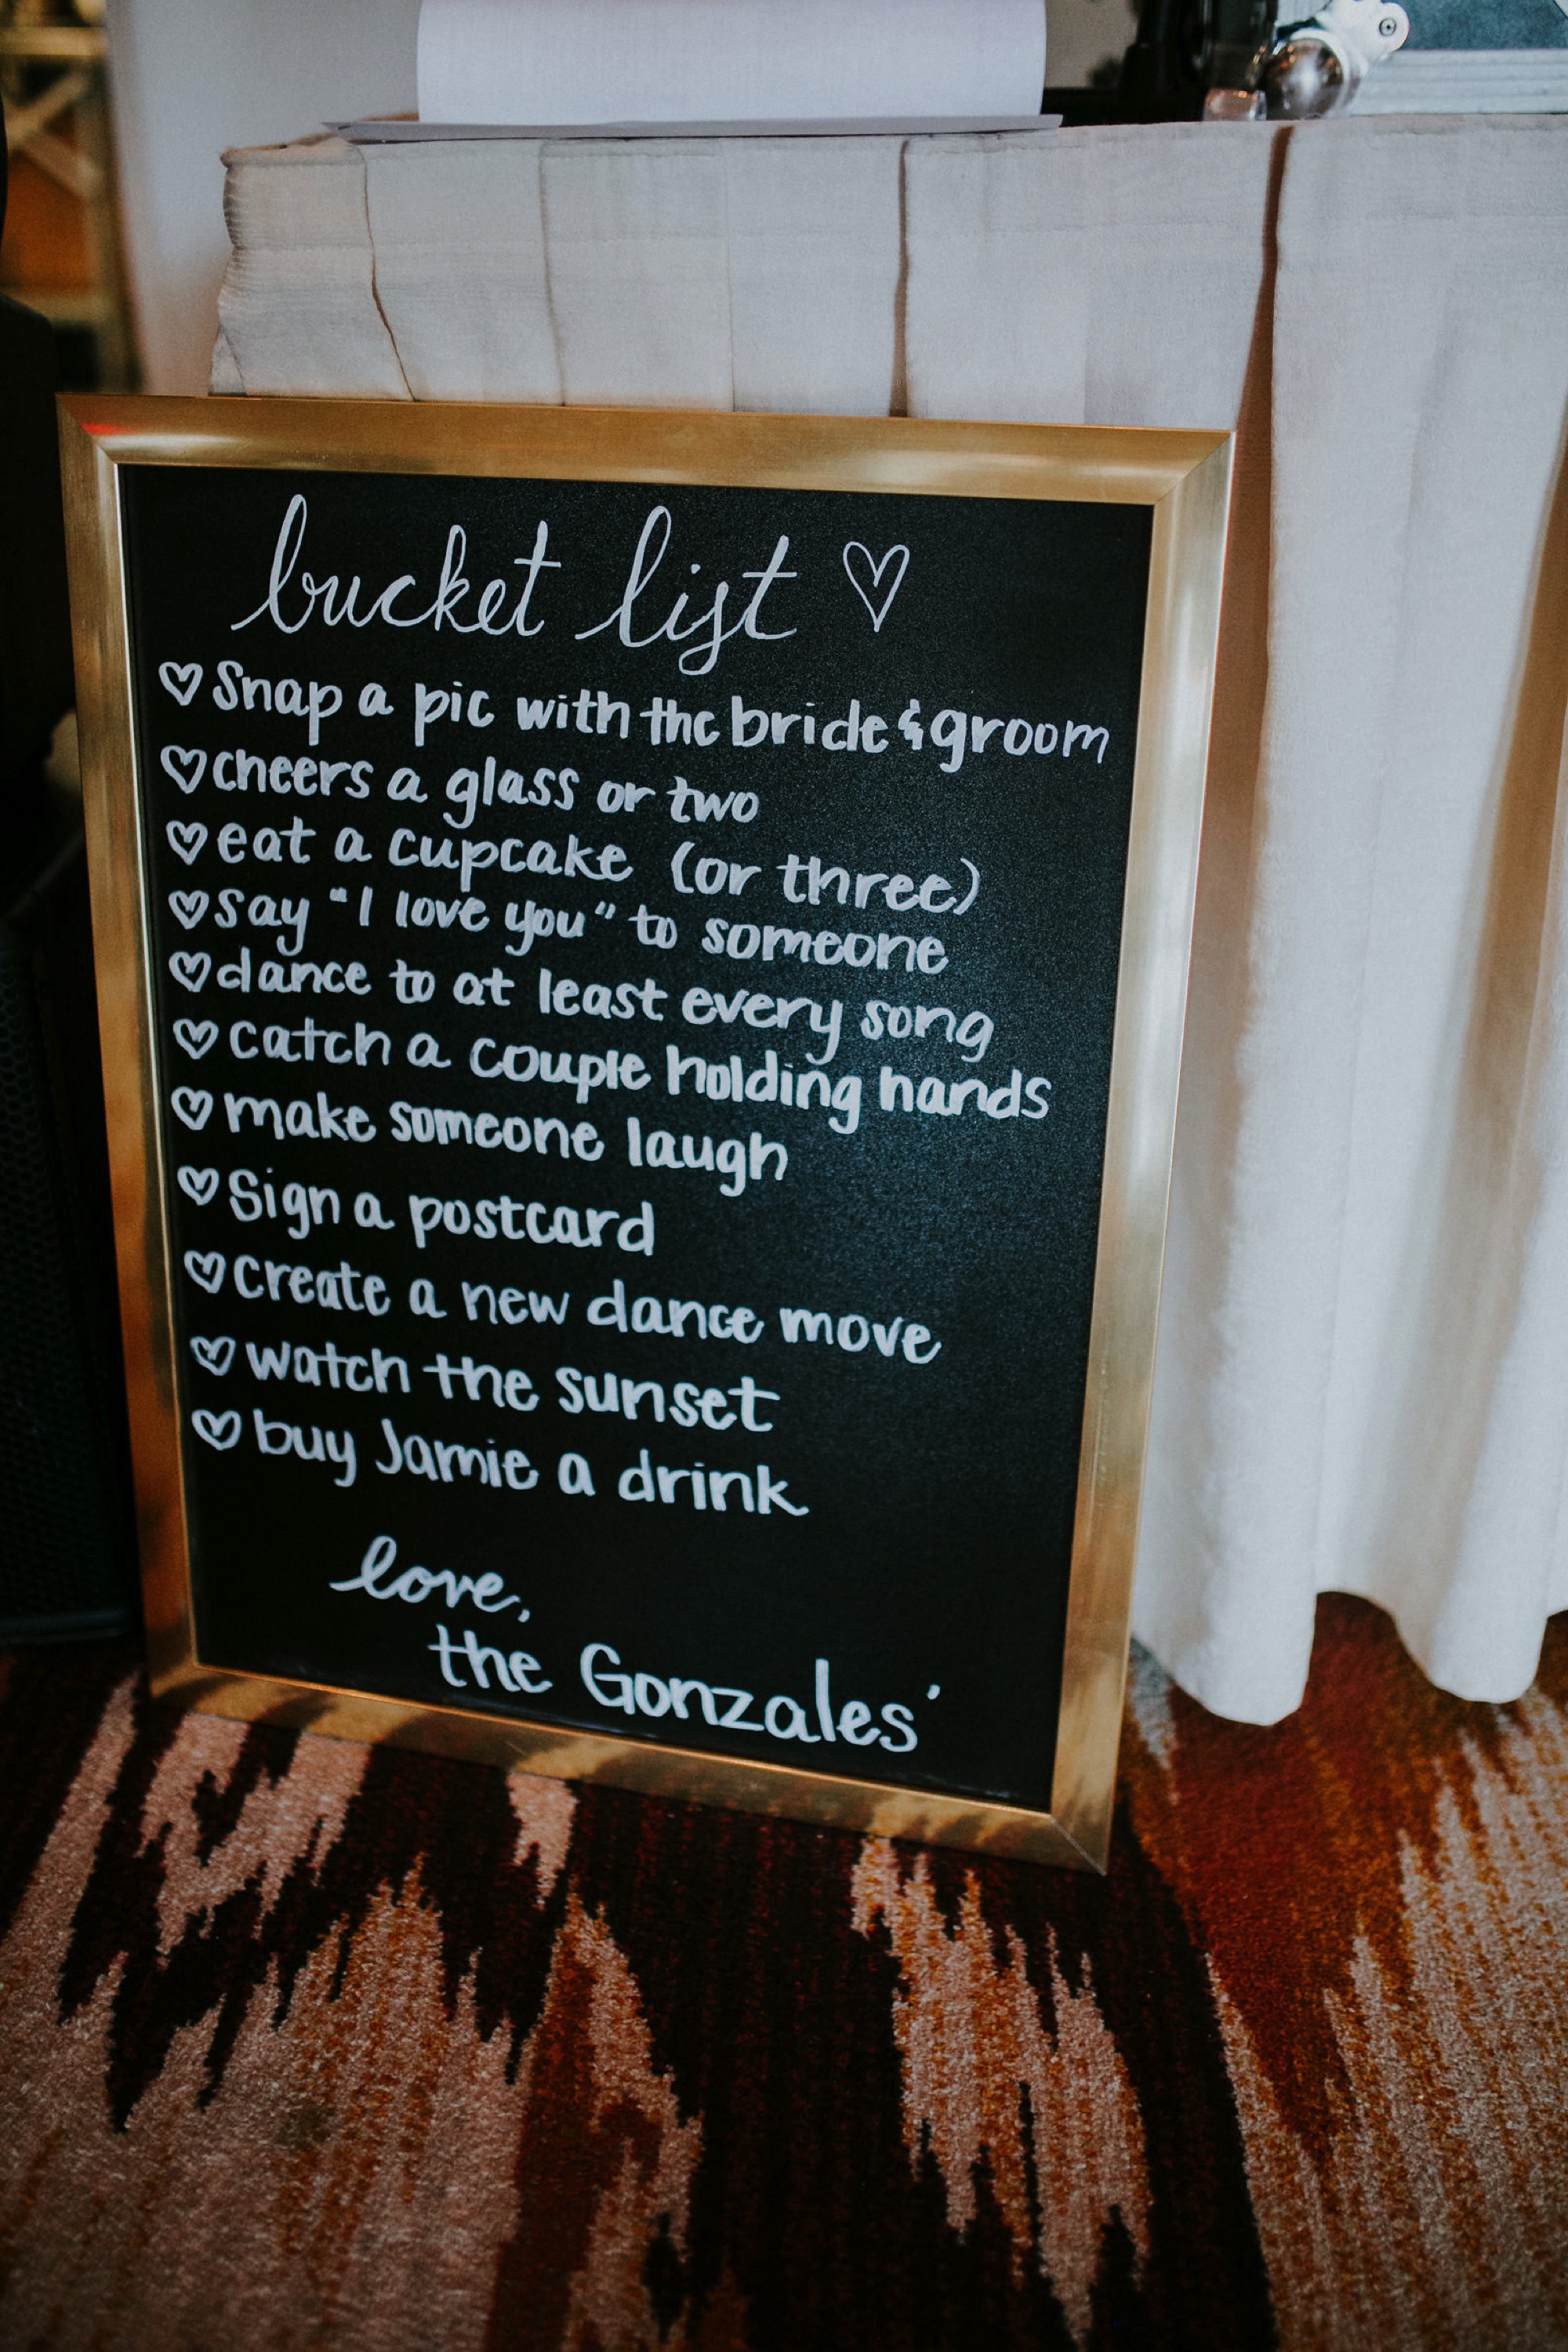 bucket list ♡
♡ Snap a pic with the bride & groom
♡ cheers a glass or two
♡ eat a cupcake (or three)
♡ say "I love you" to someone
♡ dance to at least every song
♡ catch a couple holding hands
♡ make someone laugh
♡ Sign a postcard
♡ create a new dance move
♡ watch the sunset
♡ buy Jamie a drink
love,
the Gonzales'